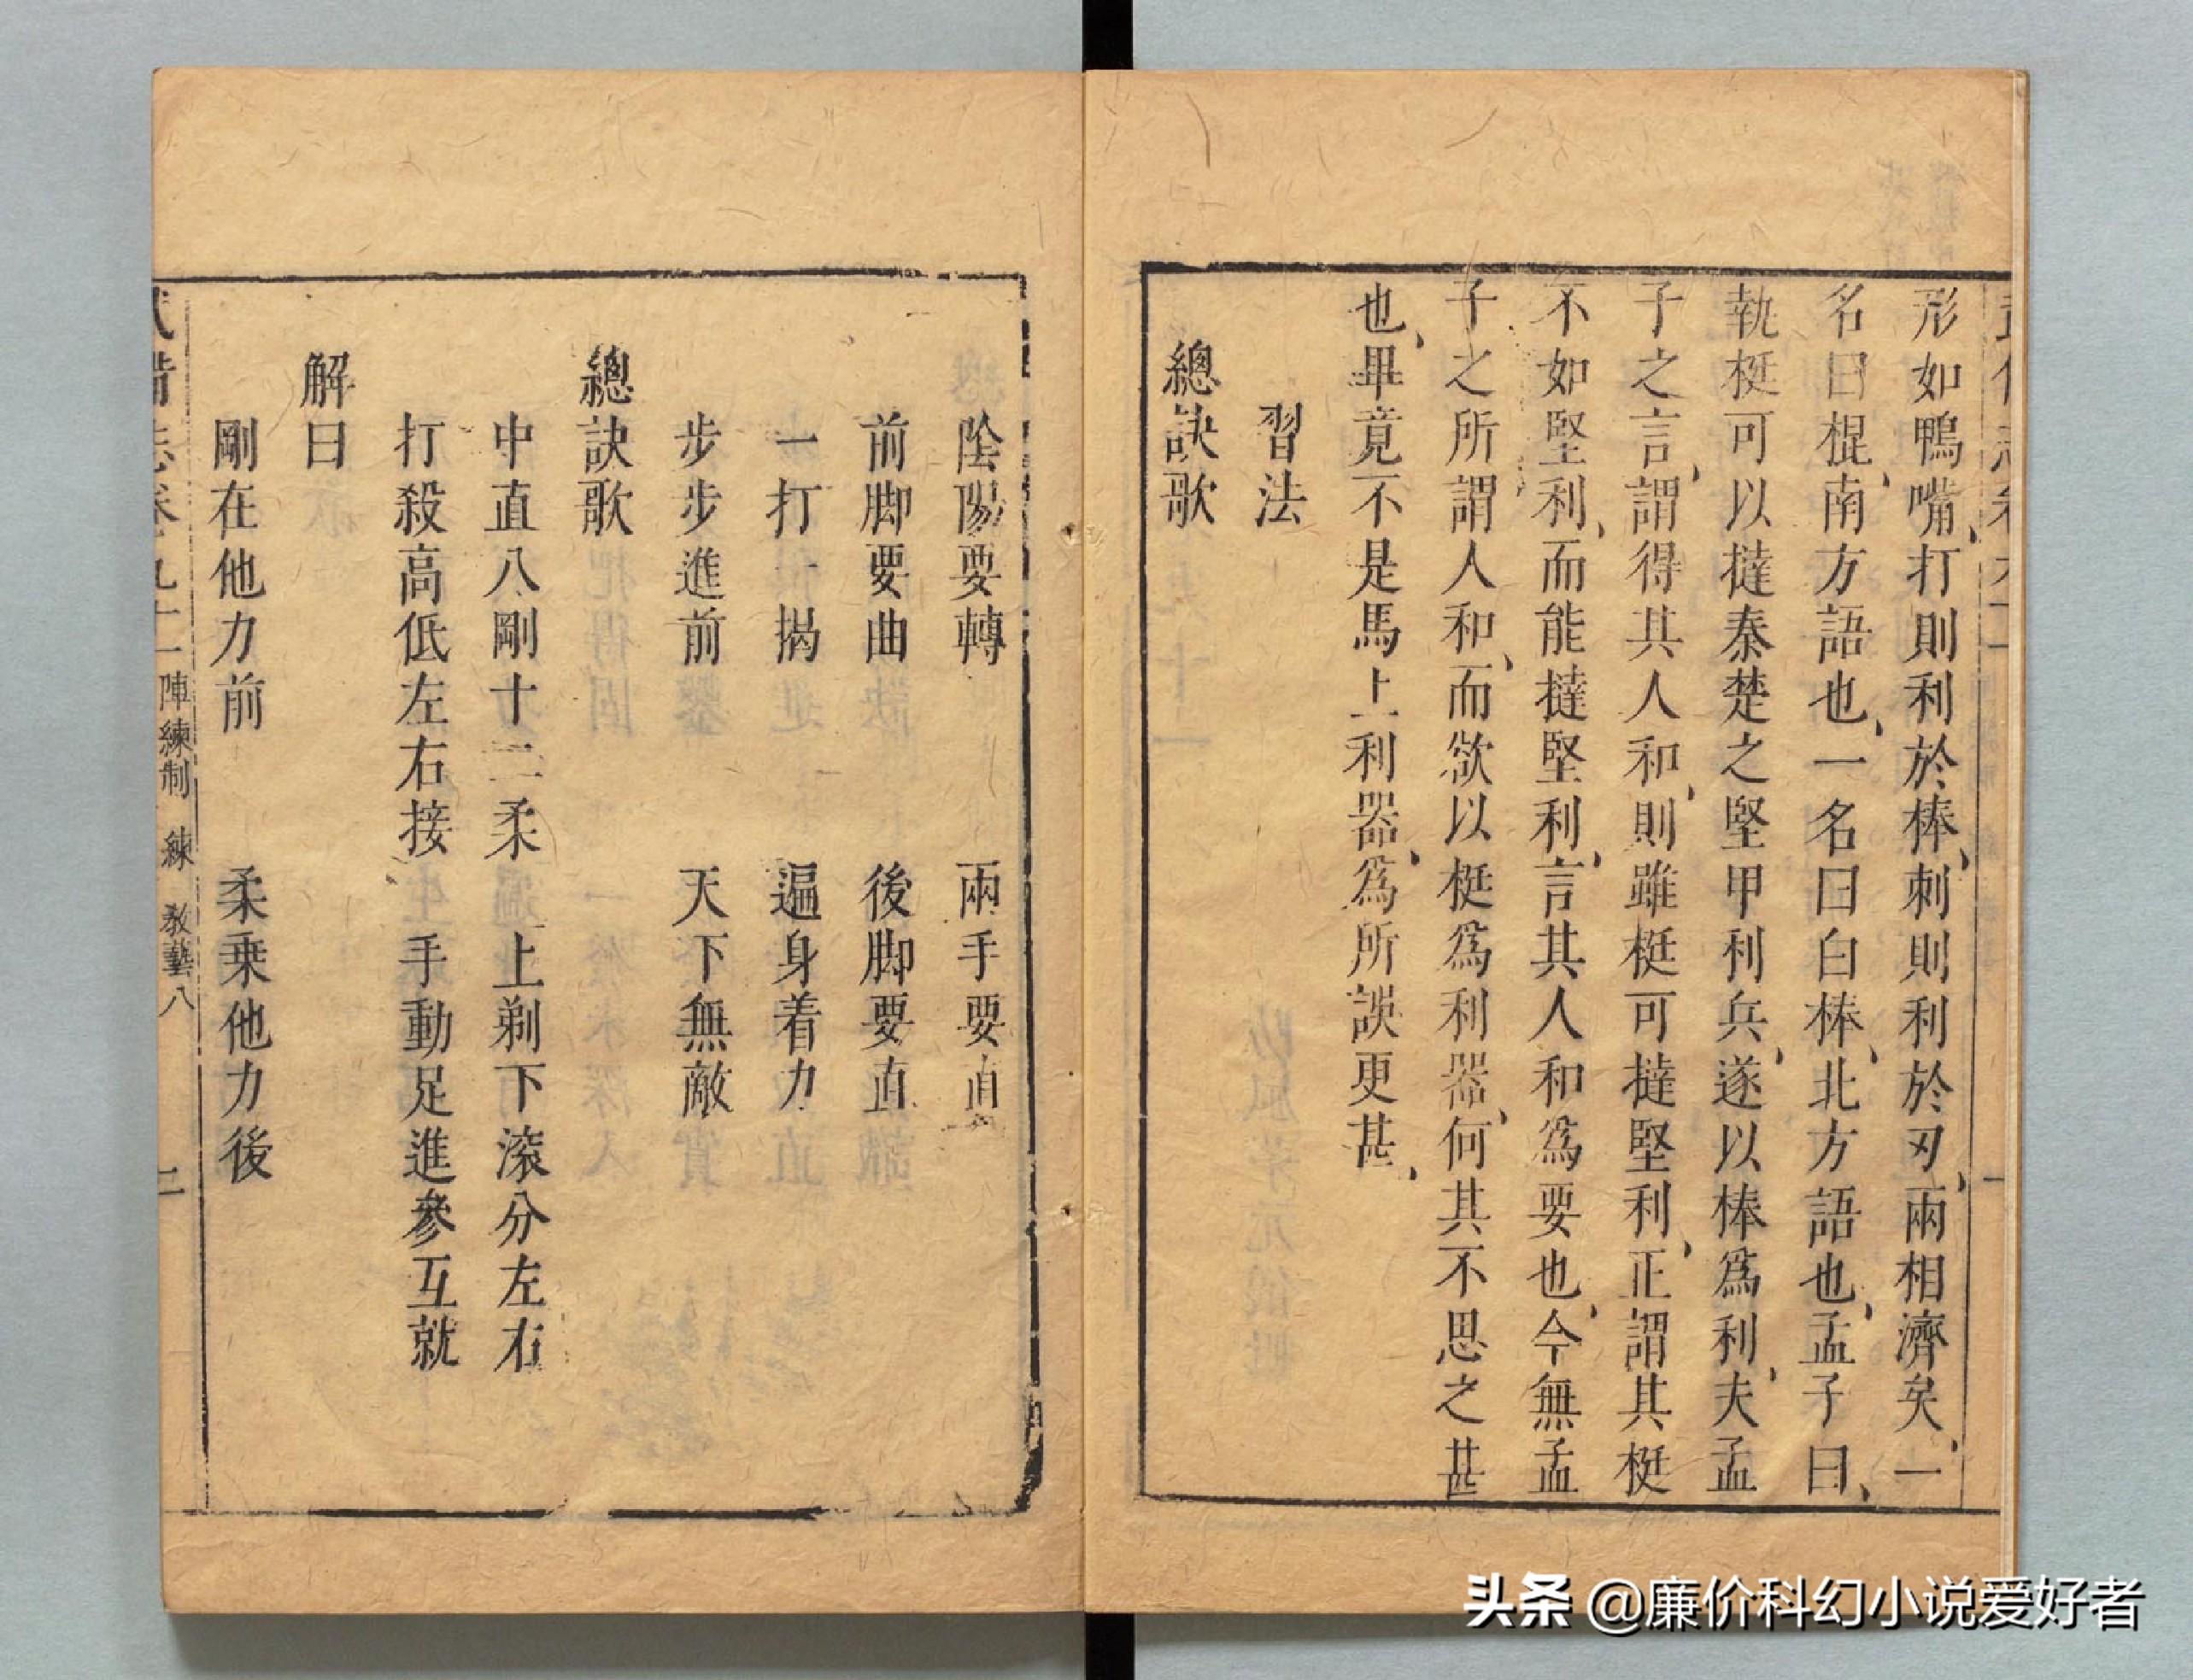 形如鴨嘴、打則利於棒、刺則利於刃、兩相濟矣、一
名曰棍、南方語也、一名曰白棒、北方語也、孟子曰、
執梃可以撻秦楚之堅甲利兵、遂以棒爲利、夫孟
子之言、謂得其人和、則雖梃可撻堅利、正謂其梃
不如堅利、而能撻堅利、言其人和爲要也、今無孟
子之所謂人和、而欲以梃爲利器、何其不思之甚
也、畢竟不是馬上利器、爲所誤更甚、
習法
總訣歌
陰陽要轉 兩手要直
前脚要曲 後脚要直
一打一揭 遍身着力
步步進前 天下無敵
總訣歌
中直八剛十二柔 上剃下滚分左右
打殺高低左右接 手動足進參互就
解曰
剛在他力前 柔乗他力後
武備志卷九十一 陣練制 練 教藝八 二
头条 @廉价科幻小说爱好者